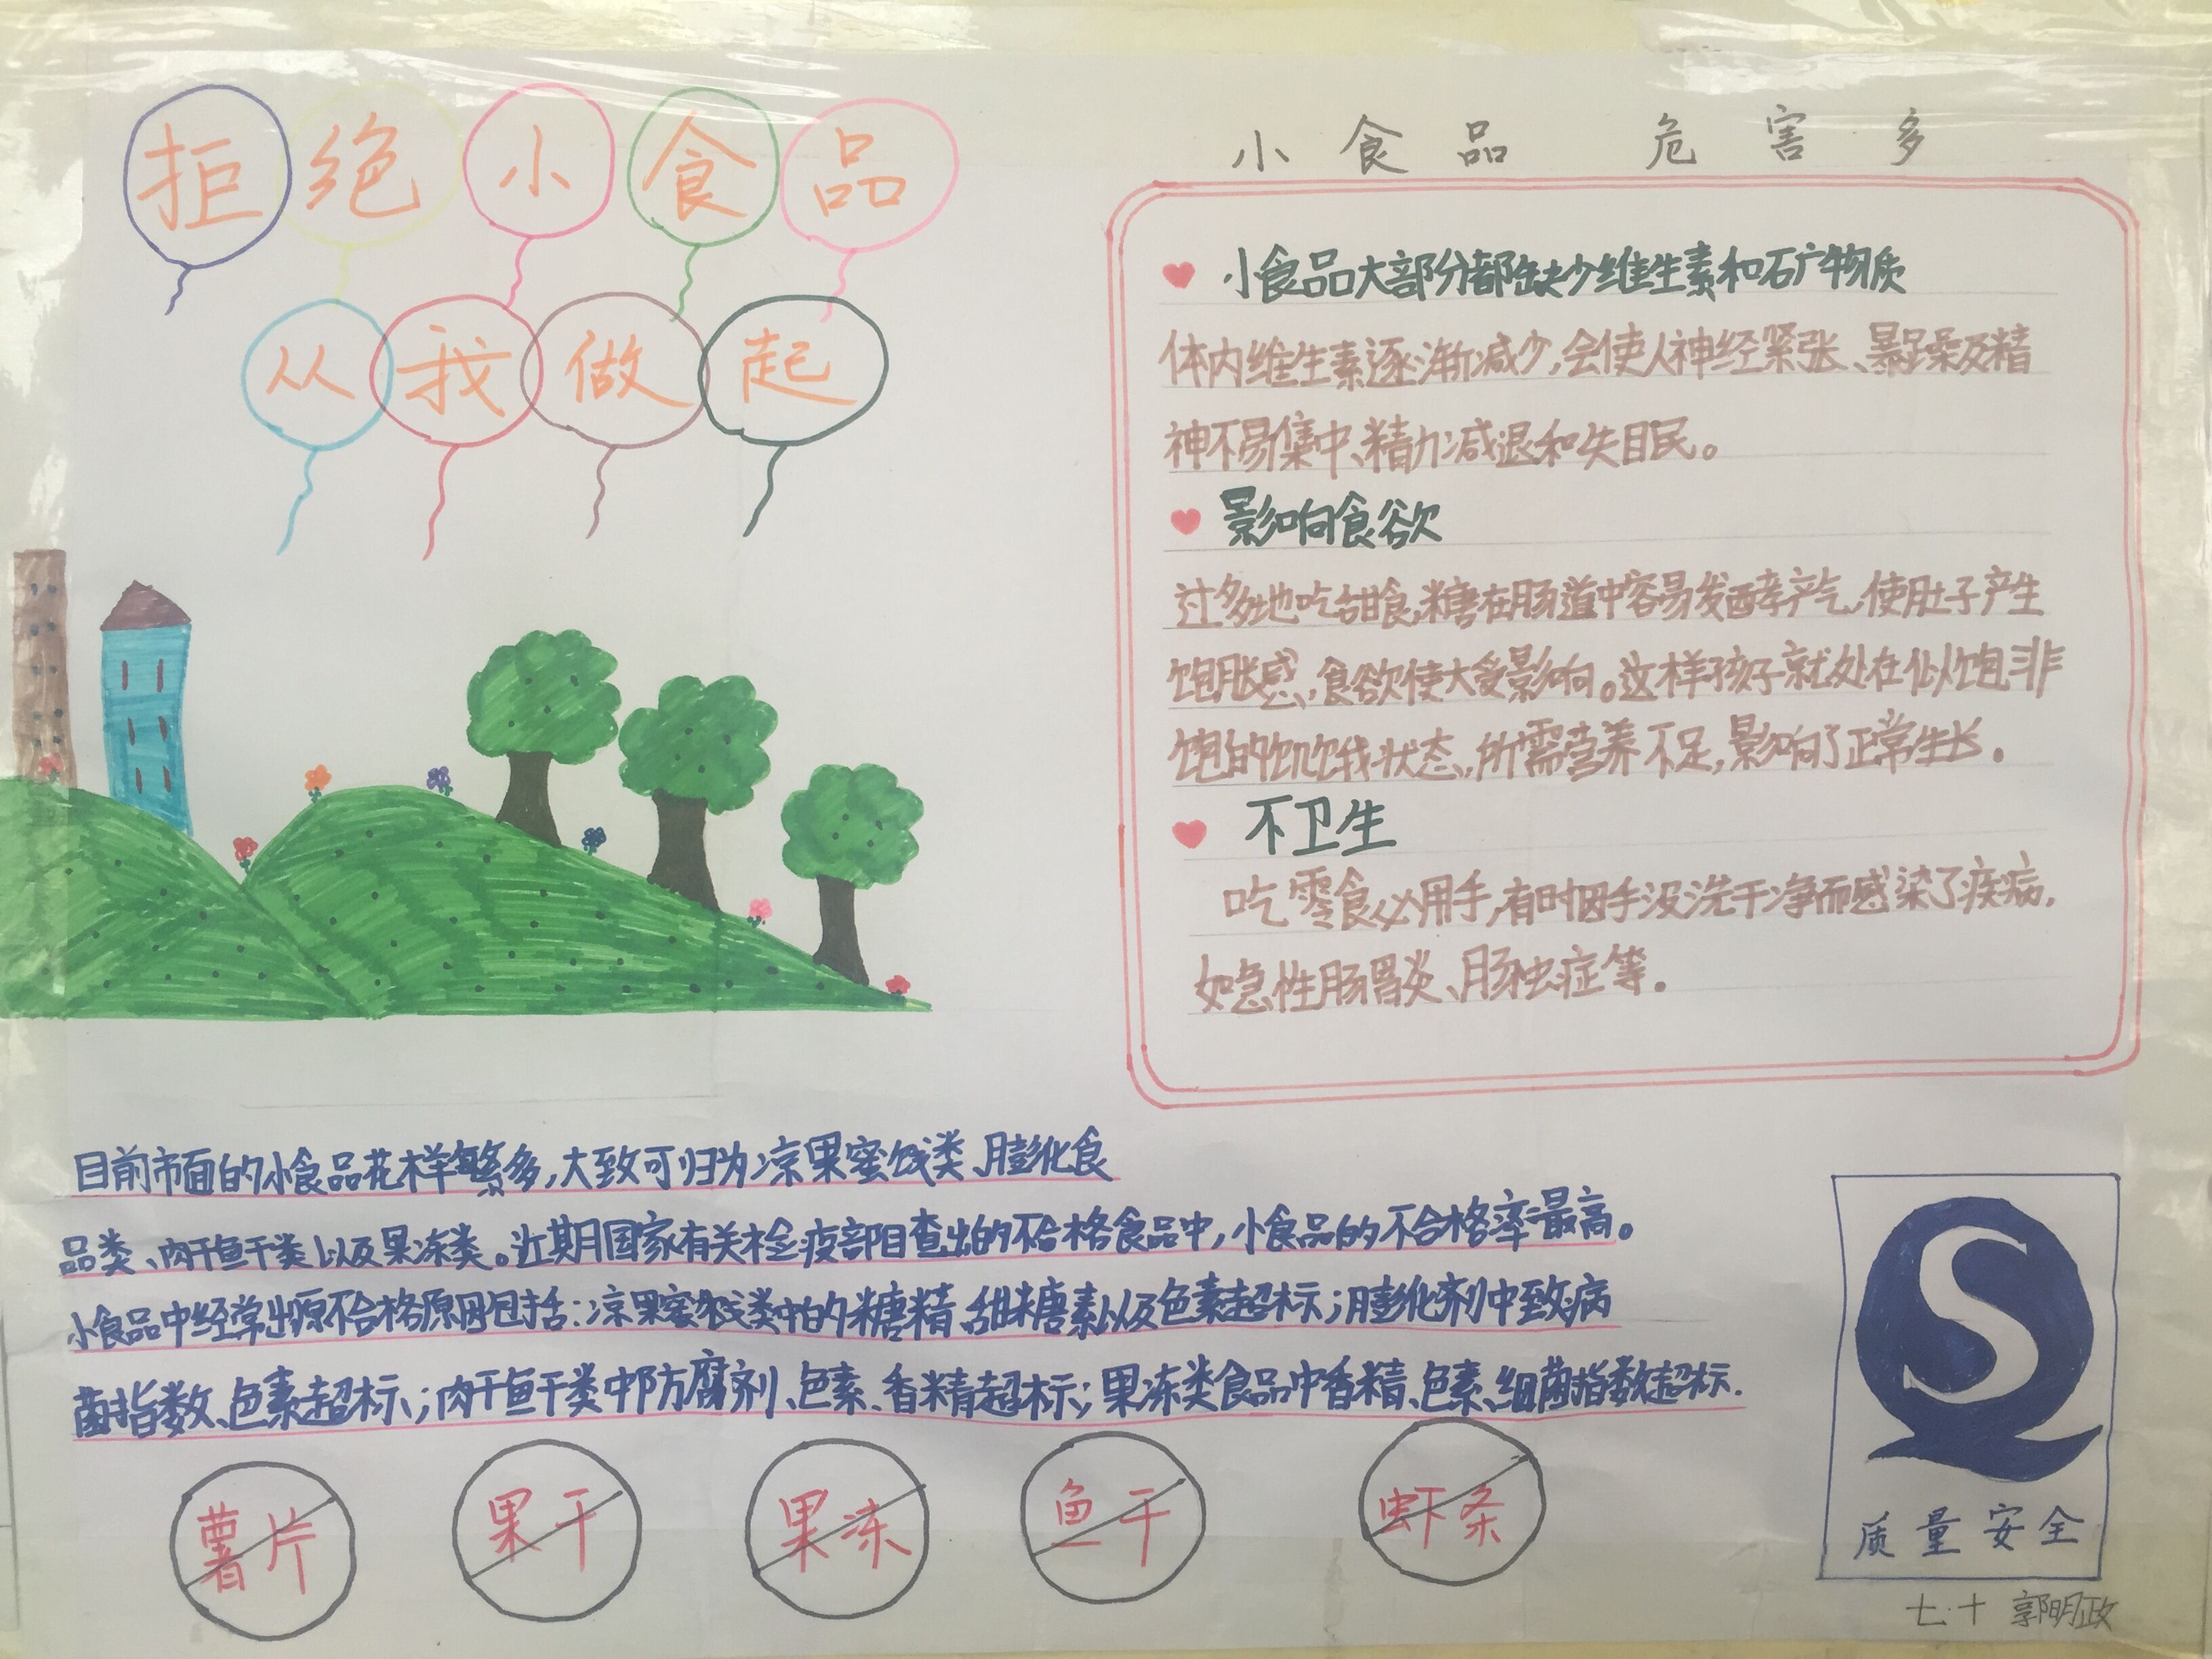 拒绝小食品
从我做起
小食品 危害多
小食品大部分都缺少维生素和矿物质
体内维生素逐渐减少,会使人神经紧张、暴躁及精
神不易集中、精力减退和失眠。
影响食欲
过多地吃甜食,糖在肠道中容易发酵产气,使肚子产生
饱胀感,食欲使大受影响。这样孩子就处在似饱非
饱的饥饿状态,所需营养不足,影响了正常生长。
不卫生
吃零食必用手,有时因手没洗干净而感染了疾病,
如急性肠胃炎、肠虫症等。
目前市面的小食品花样繁多,大致可归为凉果蜜饯类、膨化食
品类、肉干鱼干类以及果冻类。近期国家有关检疫部目查出的不合格食品中,小食品的不合格率最高。
小食品中经常出原不合格原因包括:凉果蜜饯类中的糖精、甜糖素以及色素超标;膨化剂中致病
菌指数、色素超标;肉干鱼干类中防腐剂、色素、香精超标;果冻类食品中香精、色素、细菌指数超标.
薯片
果干
果冻
鱼干
虾条
S
质量安全
七.十 郭明政